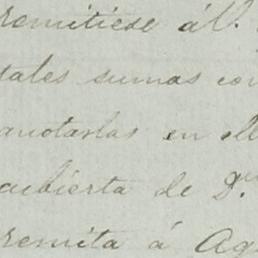 remitiese á V.
tales sumas con
anotarlas en el
abierta de D.
remita á Ag